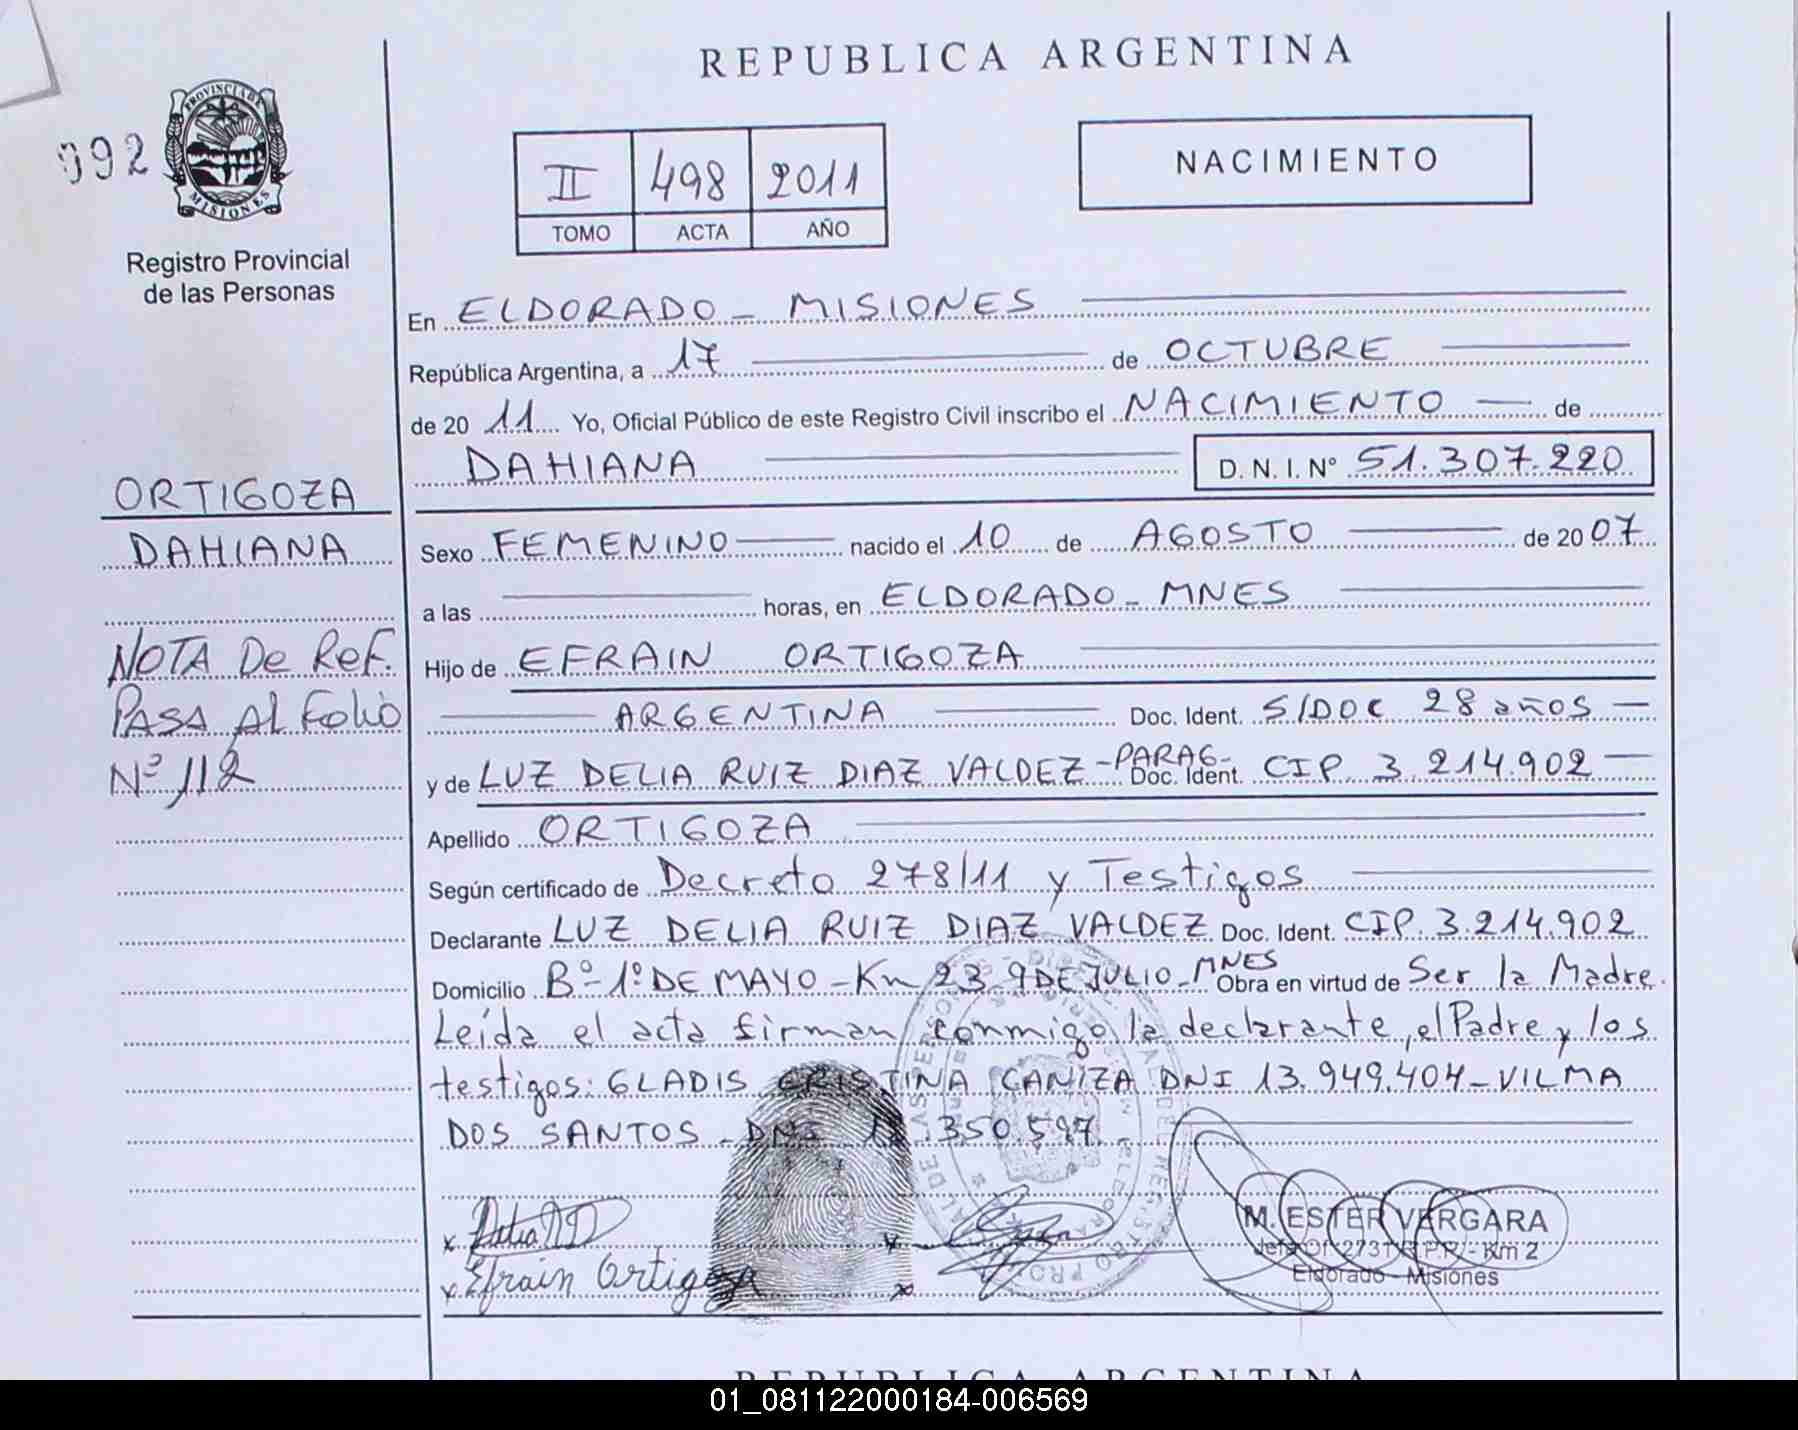 REPUBLICA ARGENTINA
092
PROVINCIA DE MISIONES
II 498 2011
TOMO ACTA AÑO
NACIMIENTO
Registro Provincial
de las Personas
En ELDORADO - MISIONES
República Argentina, a 17 de OCTUBRE
de 20 11 Yo, Oficial Público de este Registro Civil inscribo el NACIMIENTO de
DAHIANA D. N. I. Nº 51.307.220
ORTIGOZA
DAHIANA
NOTA De Ref.
PASA Al Folio
Nº 112
Sexo FEMENINO nacido el 10 de AGOSTO de 20 07
a las horas, en ELDORADO - MNES
Hijo de EFRAIN ORTIGOZA
ARGENTINA Doc. Ident. S/DOC 28 años
y de LUZ DELIA RUIZ DIAZ VALDEZ - PARAG- Doc. Ident. CIP 3.214.902
Apellido ORTIGOZA
Según certificado de Decreto 278/11 y Testigos
Declarante LUZ DELIA RUIZ DIAZ VALDEZ Doc. Ident. CIP. 3.214.902
Domicilio Bº- 1º DE MAYO - Km 23 9 DE JULIO - MNES Obra en virtud de Ser la Madre
Leída el acta firman conmigo la declarante, el Padre y los
testigos: GLADIS CRISTINA CANIZA DNI 13.949.404 - VILMA
DOS SANTOS - DNI .350.597
x
x Efrain Ortigoza
M. ESTER VERGARA
Km 2
Eldorado - Misiones
REPUBLICA ARGENTINA
01_081122000184-006569